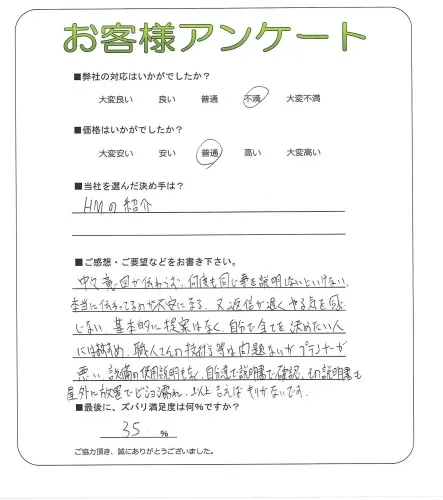 お客様アンケート
■弊社の対応はいかがでしたか？
大変良い 良い 普通 不満 大変不満
■価格はいかがでしたか？
大変安い 安い 普通 高い 大変高い
■当社を選んだ決め手は？
HMの紹介
■ご感想・ご要望などをお書き下さい。
中々意図が伝わらず、何度も同じ事を説明しないといけない。
本当に伝わってるのか不安になる。又返信が遅くやる気を感
じない。基本的に提案はなく、自分で全てを決めたい人
にはおすすめ。職人さんの技術等は問題ないがプランナーが
悪い。設備の使用説明もなく、自分達で説明書で確認、その説明書も
屋外に放置でビショ濡れ、以上言えばキリがないです。
■最後に、ズバリ満足度は何％ですか？
35 %
ご協力頂き、誠にありがとうございました。